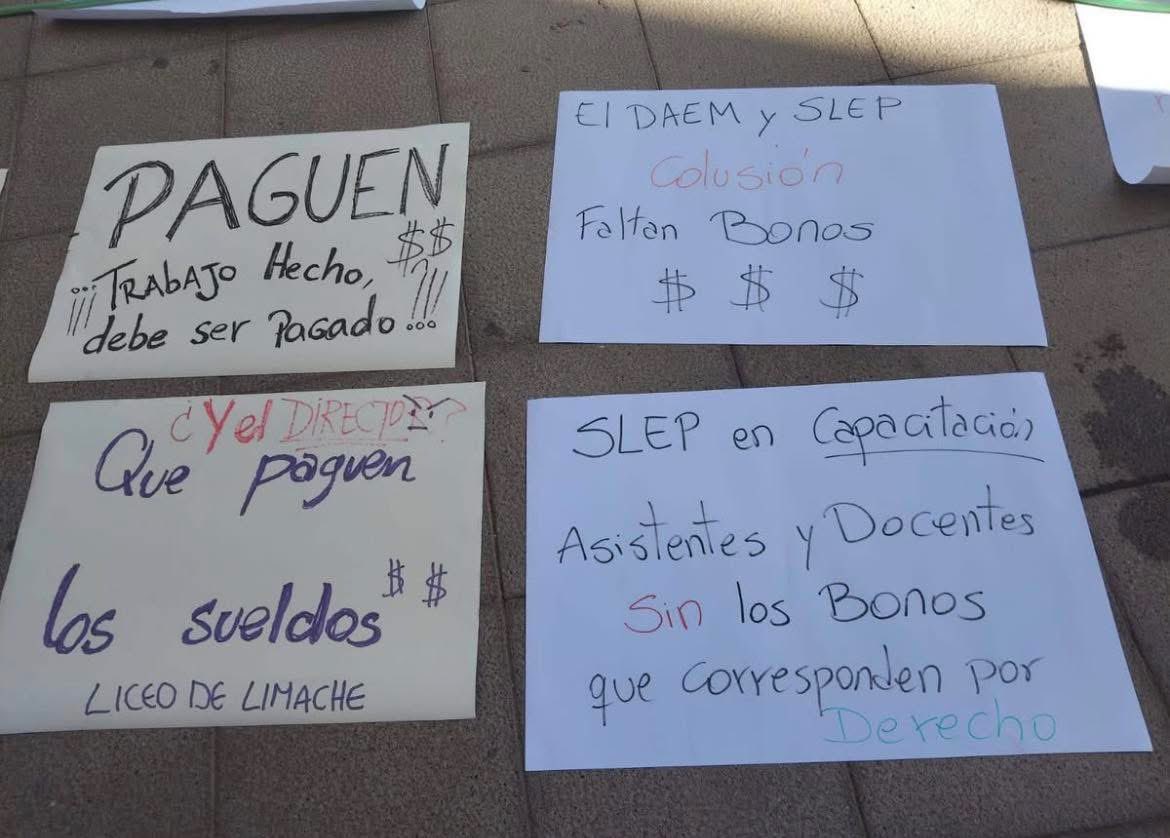 PAGUEN
$$
¡¡¡TRAbAJO Hecho,
debe ser PAGado!!!
El DAEM y SLEP
Colusión
Faltan Bonos
$ $ $
¿Y el DIRECTOR?
Que paguen
los sueldos $ $
LICEO DE LIMACHE
SLEP en Capacitación
Asistentes y Docentes
Sin los Bonos
que corresponden por
Derecho